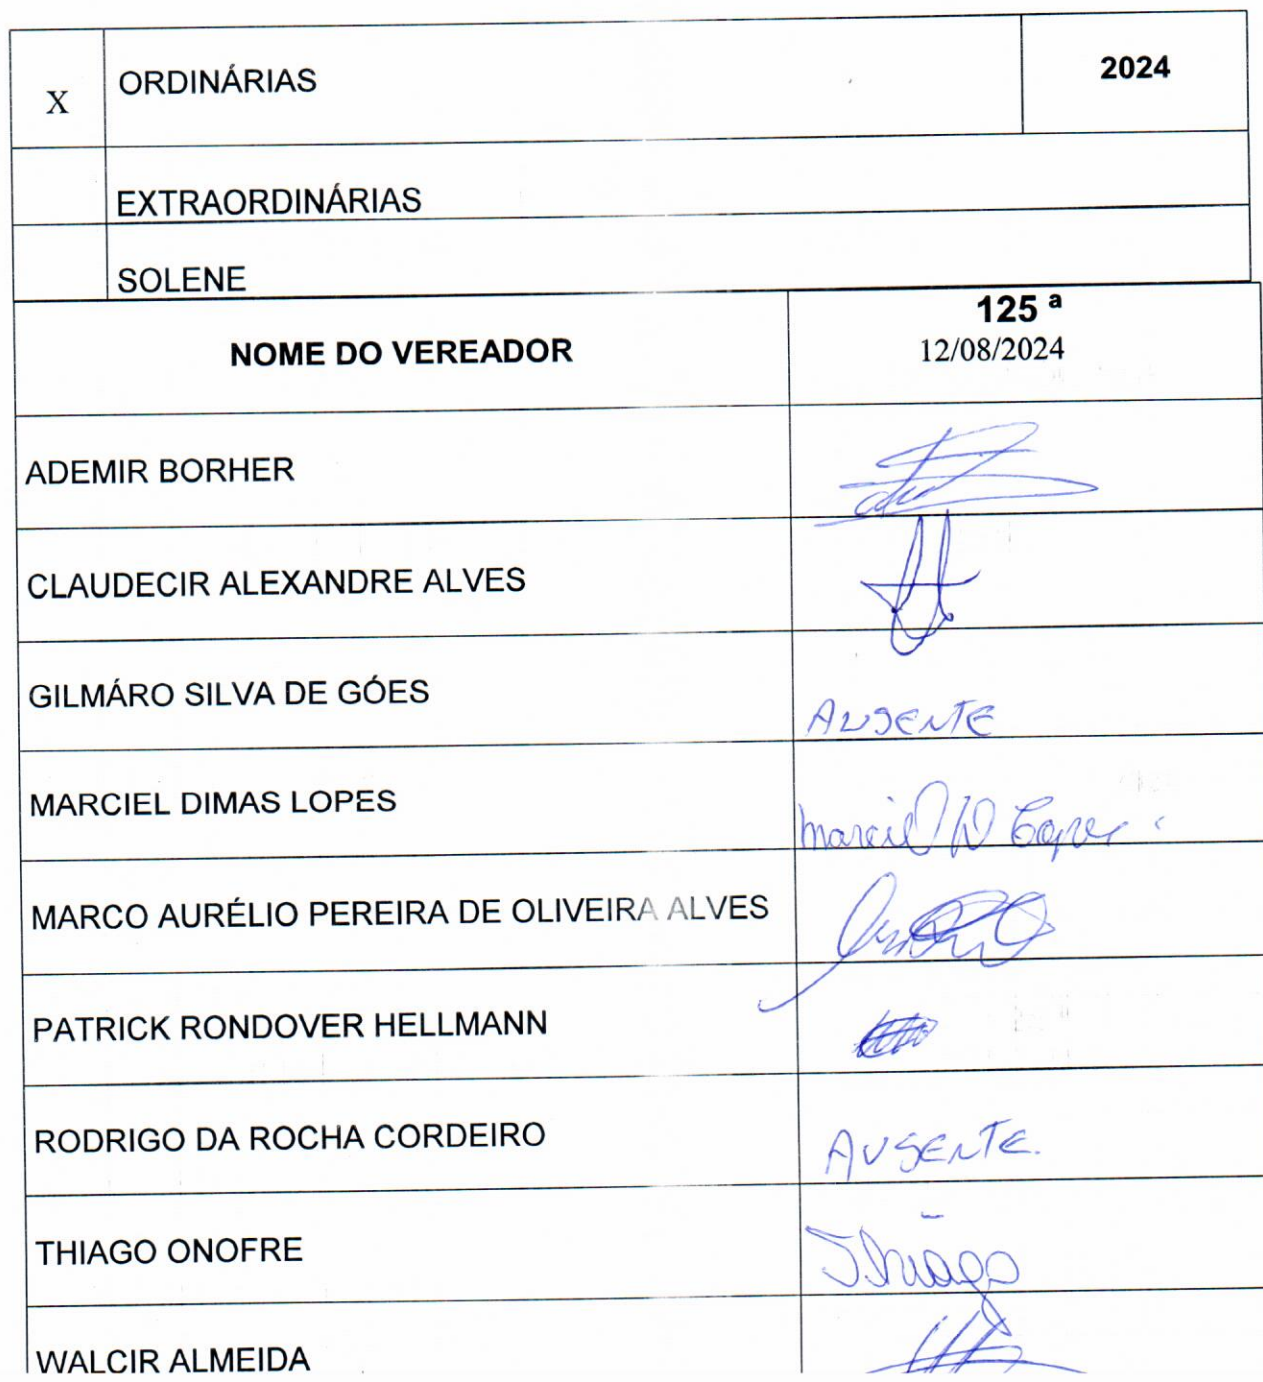 ORDINÁRIAS 2024
X
EXTRAORDINÁRIAS
SOLENE
NOME DO VEREADOR 125 ª
12/08/2024
ADEMIR BORHER
CLAUDECIR ALEXANDRE ALVES
GILMÁRO SILVA DE GÓES AUSENTE
MARCIEL DIMAS LOPES Marciel D Lopes
MARCO AURÉLIO PEREIRA DE OLIVEIRA ALVES
PATRICK RONDOVER HELLMANN
RODRIGO DA ROCHA CORDEIRO AUSENTE.
THIAGO ONOFRE Thiago
WALCIR ALMEIDA